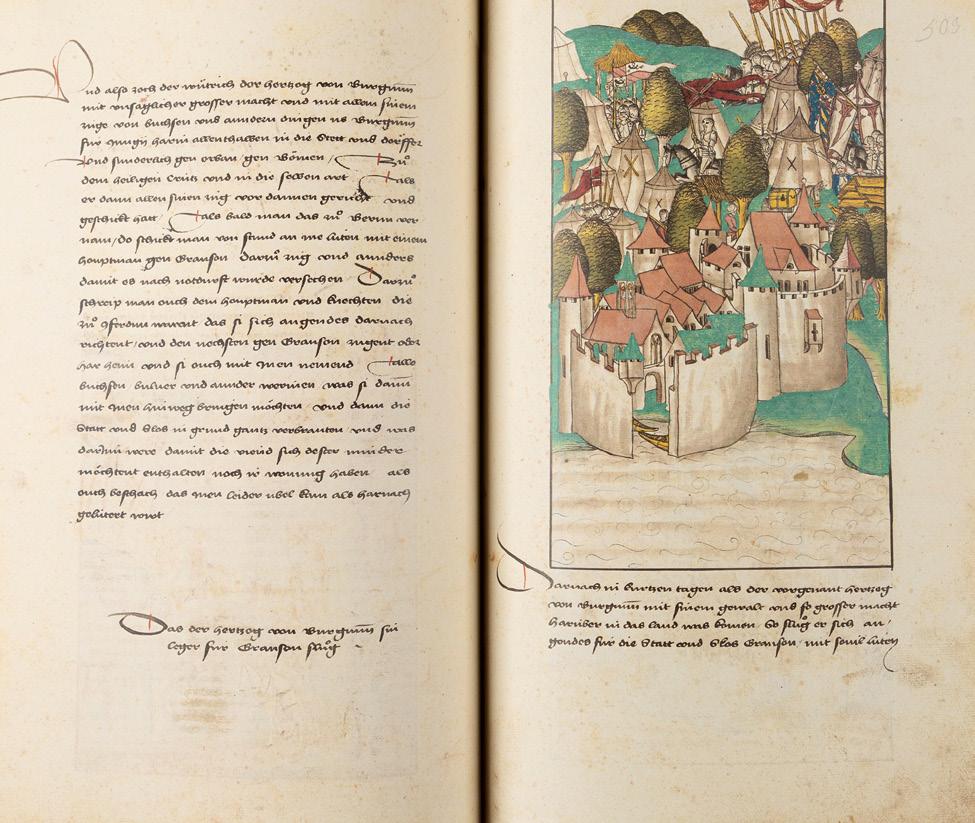 Und also zoch der wütrich der hertzog von Burgunn
mit unsaglicher grosser macht und mit allem sinem
zuge von buchsen und anndern dingen us Burgunn
fur Jungy harin allenthalben in die Stett und dörffer
und sunderlich gen orban / gen Bömen / Zů
dem heiligen Crütz und in die selben art Als
er dann allen sinen zug vor dannen gericht und
geschickt hatt Als bald man das zů Bernn ver
nam / do schickt man von stund an me lüten mit einem
houptman gen Granson darům zug und annders
damit es nach notdurft wurde versechen Darzů
schreip man ouch dem houptman und knechten die
zů Iferdun warent das si sich angendes darnach
richtent / und den nechsten gen Granson zugent oder
har heim und si ouch mit Inen nemend Allo
buchsen bulver und annder werinen was si dann
mit Inen hinweg bringen möchten und dann die
Statt und Slos in grund gantz verbranten und was
darInn were damit die viend sich dester minder
möchtent enthalten noch ir wonung haben als
ouch beschach das Inen leider übel kam als harnach
gelütert wirt
Das der hertzog von Burgunn sin
leger fur Granson slůg
509
Darnach in kurtzen tagen als der vorgenant hertzog
von Burgunn mit sinem gewalt und so grosser macht
harüber in das land was komen So slůg er sich an /
gendes fur die Statt und Slos Granson / mit sovil lüten